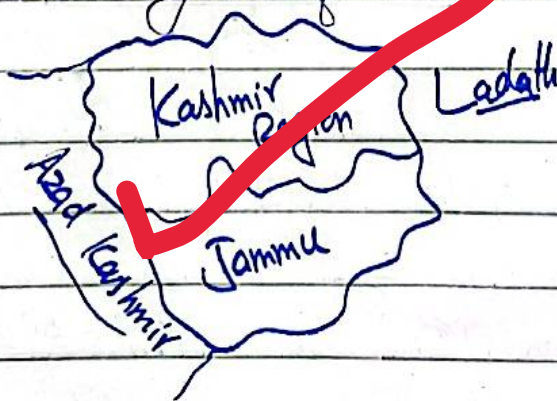 Kashmir
Region
Ladakh
Azad Kashmir
Jammu